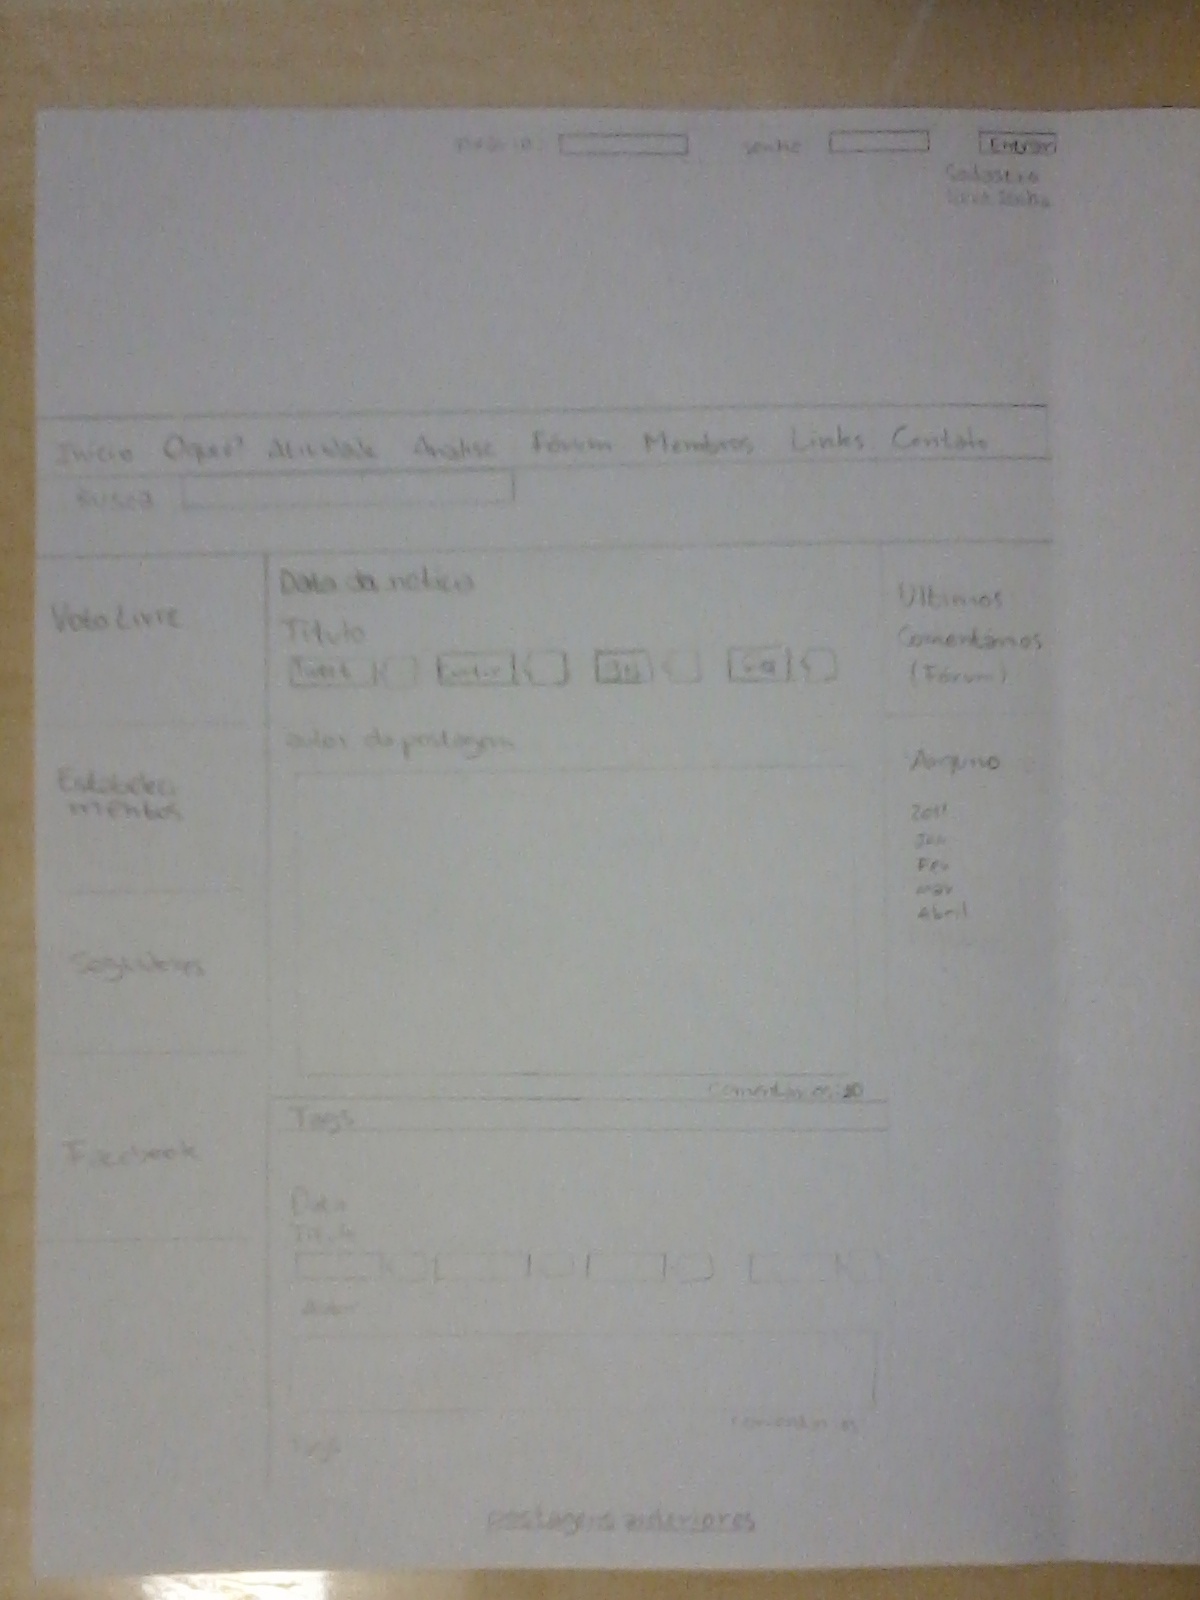 usuário: senha Entrar
Cadastro
Início Oque? Atividade Análise Fórum Membros Links Contato
Busca
Voto Livre
Estabeleci
mentos
Seguidores
Facebook
Data da notícia
Título
Tweet Curtir
autor da postagem
comentários 20
Tags
Data
Título
Autor
comentários
Tags
Ultimos
Comentários
(Fórum)
Arquivo
2011
Jan
Fev
mar
Abril
postagens anteriores